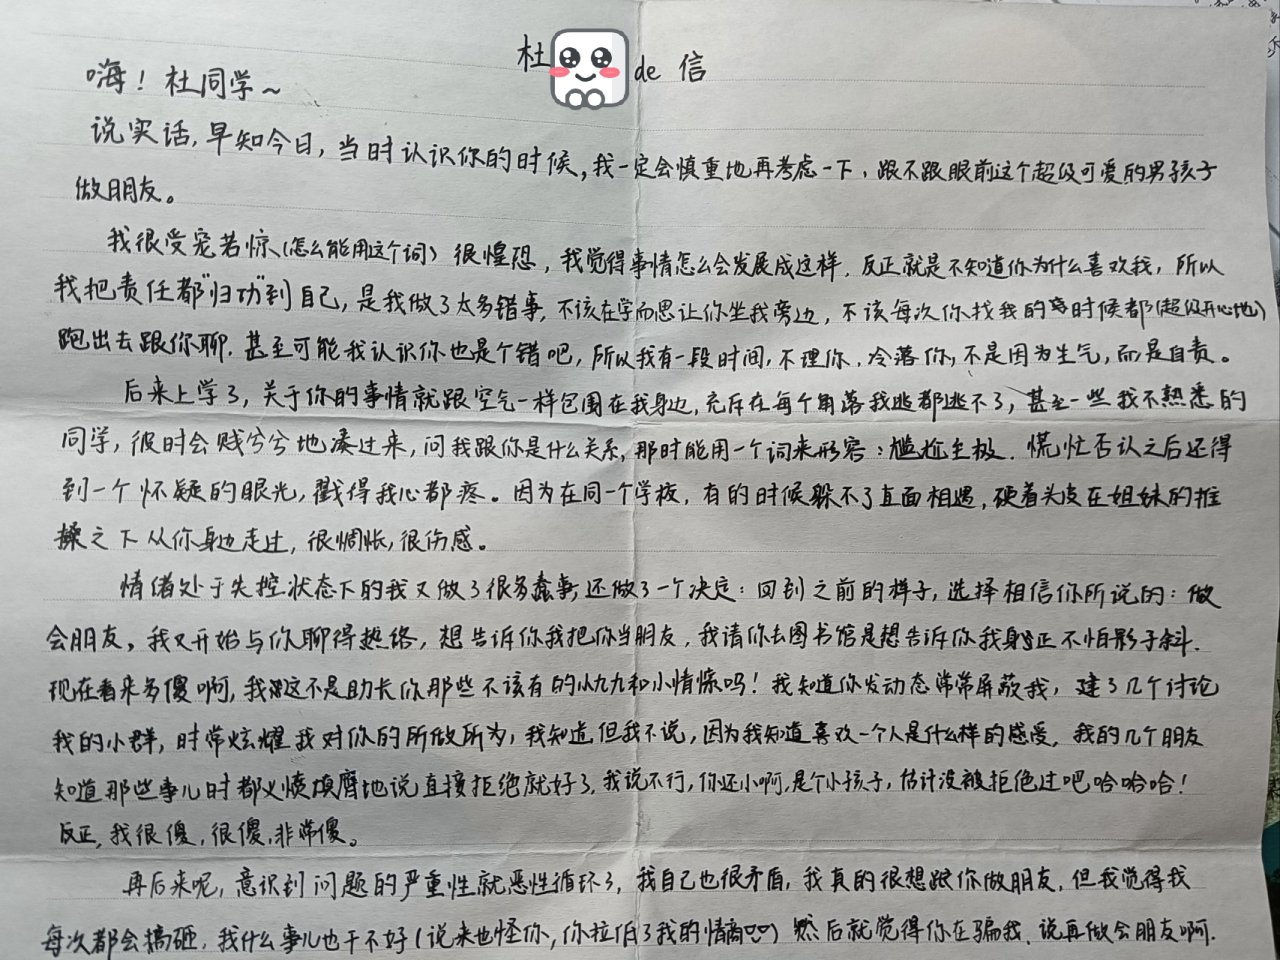 杜 de 信
嗨！杜同学~
说实话，早知今日，当时认识你的时候，我一定会慎重地再考虑一下，跟不跟眼前这个超级可爱的男孩子
做朋友。
我很受宠若惊（怎么能用这个词）很惶恐，我觉得事情怎么会发展成这样，反正就是不知道你为什么喜欢我，所以
我把责任都"归功"到自己，是我做了太多错事，不该在学而思让你坐我旁边，不该每次你找我的时候都（超级开心地）
跑出去跟你聊，甚至可能我认识你也是个错吧，所以我有一段时间，不理你，冷落你，不是因为生气，而是自责。
后来上学了，关于你的事情就跟空气一样包围在我身边，充斥在每个角落我逃都逃不了，甚至一些我不熟悉的
同学，彼时会贱兮兮地凑过来，问我跟你是什么关系，那时能用一个词来形容：尴尬至极，慌忙否认之后还得
到一个怀疑的眼光，戳得我心都疼。因为在同一个学校，有的时候躲不了直面相遇，硬着头皮在姐妹的推
搡之下从你身边走过，很惆怅，很伤感。
情绪处于失控状态下的我又做了很多蠢事，还做了一个决定：回到之前的样子，选择相信你所说的：做
会朋友。我又开始与你聊得热络，想告诉你我把你当朋友，我请你去图书馆是想告诉你我身正不怕影子斜.
现在看来多傻啊，我这不是助长你那些不该有的小九九和小情愫吗！我知道你发动态常常屏蔽我，建了几个讨论
我的小群，时常炫耀我对你的所做所为，我知道但我不说，因为我知道喜欢一个人是什么样的感受，我的几个朋友
知道那些事儿时都义愤填膺地说直接拒绝就好了，我说不行，你还小啊，是个小孩子，估计没被拒绝过吧哈哈哈！
反正，我很傻，很傻，非常傻。
再后来呢，意识到问题的严重性就恶性循环了，我自己也很矛盾，我真的很想跟你做朋友，但我觉得我
每次都会搞砸，我什么事儿也干不好（说来也怪你，你拉低了我的情商）然后就觉得你在骗我，说再做会朋友啊.